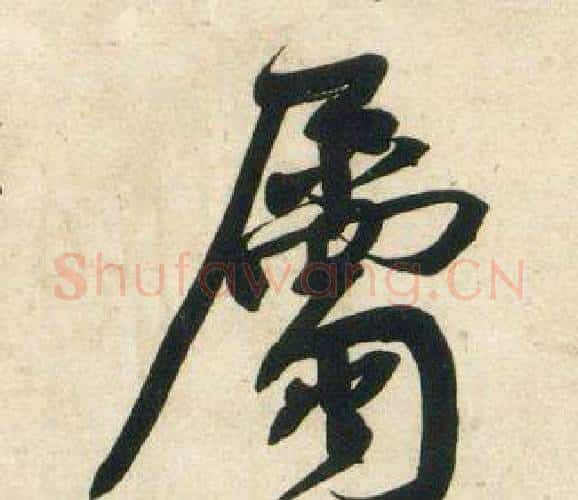 屬
Shufawang.CN